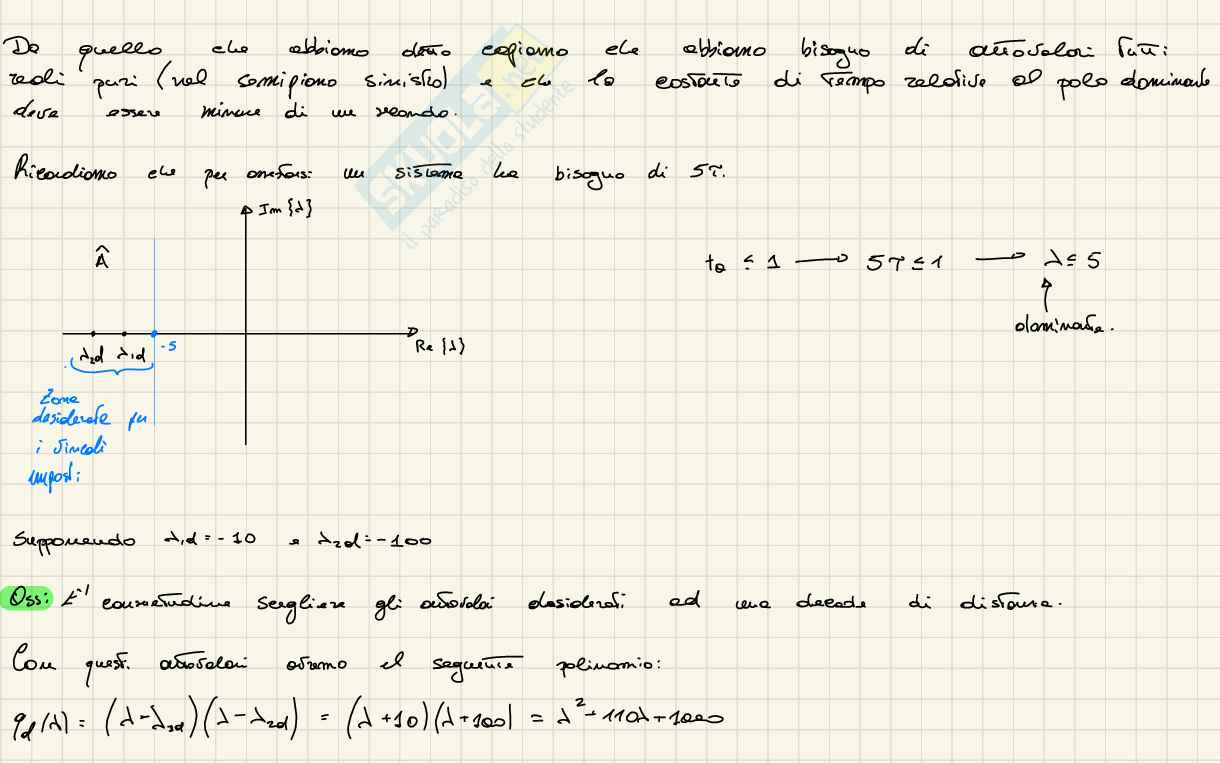 Da quello che abbiamo detto capiamo che abbiamo bisogno di autovalori tutti
reali puri (nel semipiano sinistro) e che la costante di tempo relativa al polo dominante
deve essere minore di un secondo.
SKUOLA.net
il paradiso dello studente
Ricordiamo che per un sistema ha bisogno di 5τ.
Im {λ}
Â
ta ≤ 1 → 5τ ≤ 1 → λ ≤ 5
dominante.
-5
Re {λ}
λ2d λ1d
Zona
desiderata per
i vincoli
imposti
Supponendo λ1d = -10 e λ2d = -100
Oss: E' consuetudine scegliere gli autovalori desiderati ad una decade di distanza.
Con questi autovalori avremo il seguente polinomio:
qd(λ) = (λ-λ1d)(λ-λ2d) = (λ+10)(λ+100) = λ²+110λ+1000